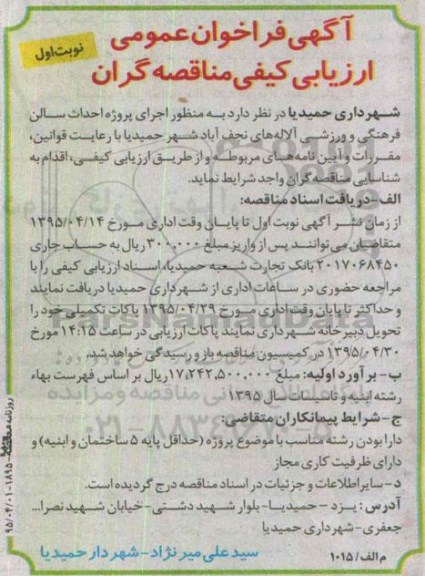 آگهی فراخوان عمومی
ارزیابی کیفی مناقصه گران
نوبت اول
شهرداری حمیدیا در نظر دارد به منظور اجرای پروژه احداث سالن
فرهنگی و ورزشی آلاله‌های نجف آباد شهر حمیدیا با رعایت قوانین،
مقررات و آیین نامه‌های مربوطه و از طریق ارزیابی کیفی، اقدام به
شناسایی مناقصه گران واجد شرایط نماید.
الف-دریافت اسناد مناقصه:
از زمان نشر آگهی نوبت اول تا پایان وقت اداری مورخ ۱۳۹۵/۰۴/۱۴
متقاضیان می توانند پس از واریز مبلغ ۳۰۰,۰۰۰ ریال به حساب جاری
۲۰۱۷۰۶۸۴۵۰ بانک تجارت شعبه حمیدیا، اسناد ارزیابی کیفی را با
مراجعه حضوری در ساعات اداری از شهرداری حمیدیا دریافت نمایند
و حداکثر تا پایان وقت اداری مورخ ۱۳۹۵/۰۴/۲۹ پاکات تکمیلی خود را
تحویل دبیرخانه شهرداری نمایند پاکات ارزیابی در ساعت ۱۴:۱۵ مورخ
۱۳۹۵/۰۴/۳۰ در کمیسیون مناقصه باز و رسیدگی خواهد شد.
ب- برآورد اولیه: مبلغ ۱۷,۲۴۲,۵۰۰,۰۰۰ ریال بر اساس فهرست بهاء
رشته ابنیه و تاسیسات سال ۱۳۹۵
ج-شرایط پیمانکاران متقاضی:
دارا بودن رشته مناسب با موضوع پروژه (حداقل پایه ۵ ساختمان و ابنیه) و
دارای ظرفیت کاری مجاز
د-سایر اطلاعات و جزئیات در اسناد مناقصه درج گردیده است.
آدرس: یزد-حمیدیا-بلوار شهید دشتی-خیابان شهید نصرا...
جعفری-شهرداری حمیدیا
سید علی میر نژاد-شهردار حمیدیا
م الف/ ۱۰۱۵
۹۵/۰۴/۰۱-۱۸۹۵